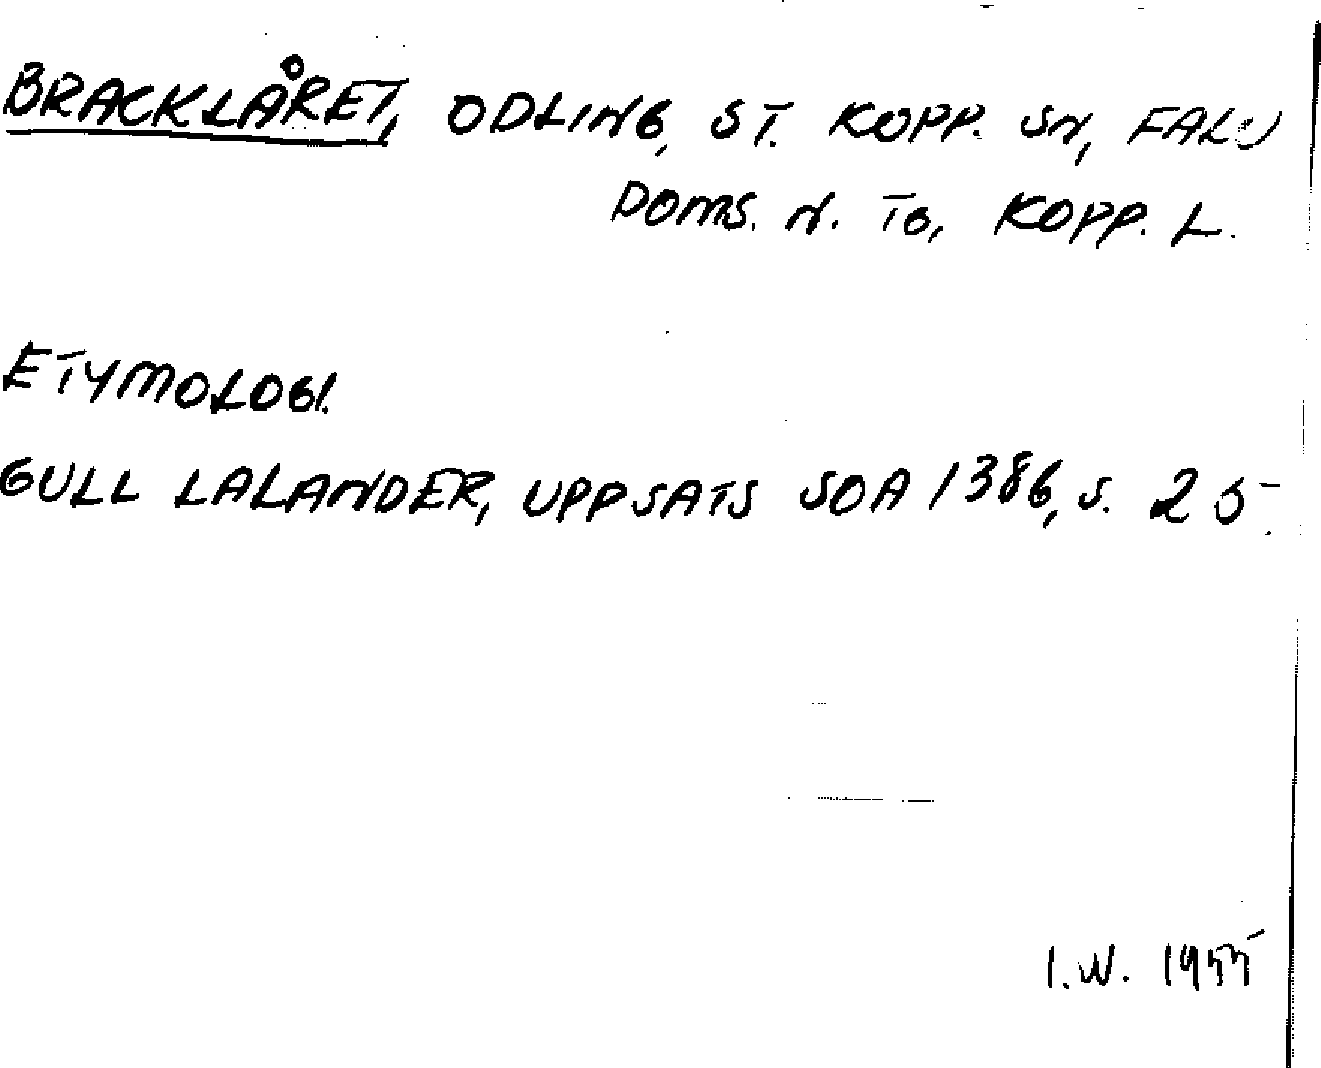 BRACKLÅRET, ODLING, ST. KOPP. SN, FALU
DOMS. N. TG, KOPP. L.
ETYMOLOGI.
GULL LALANDER, UPPSATS SOA 1386, S. 25.
I.W. 1955